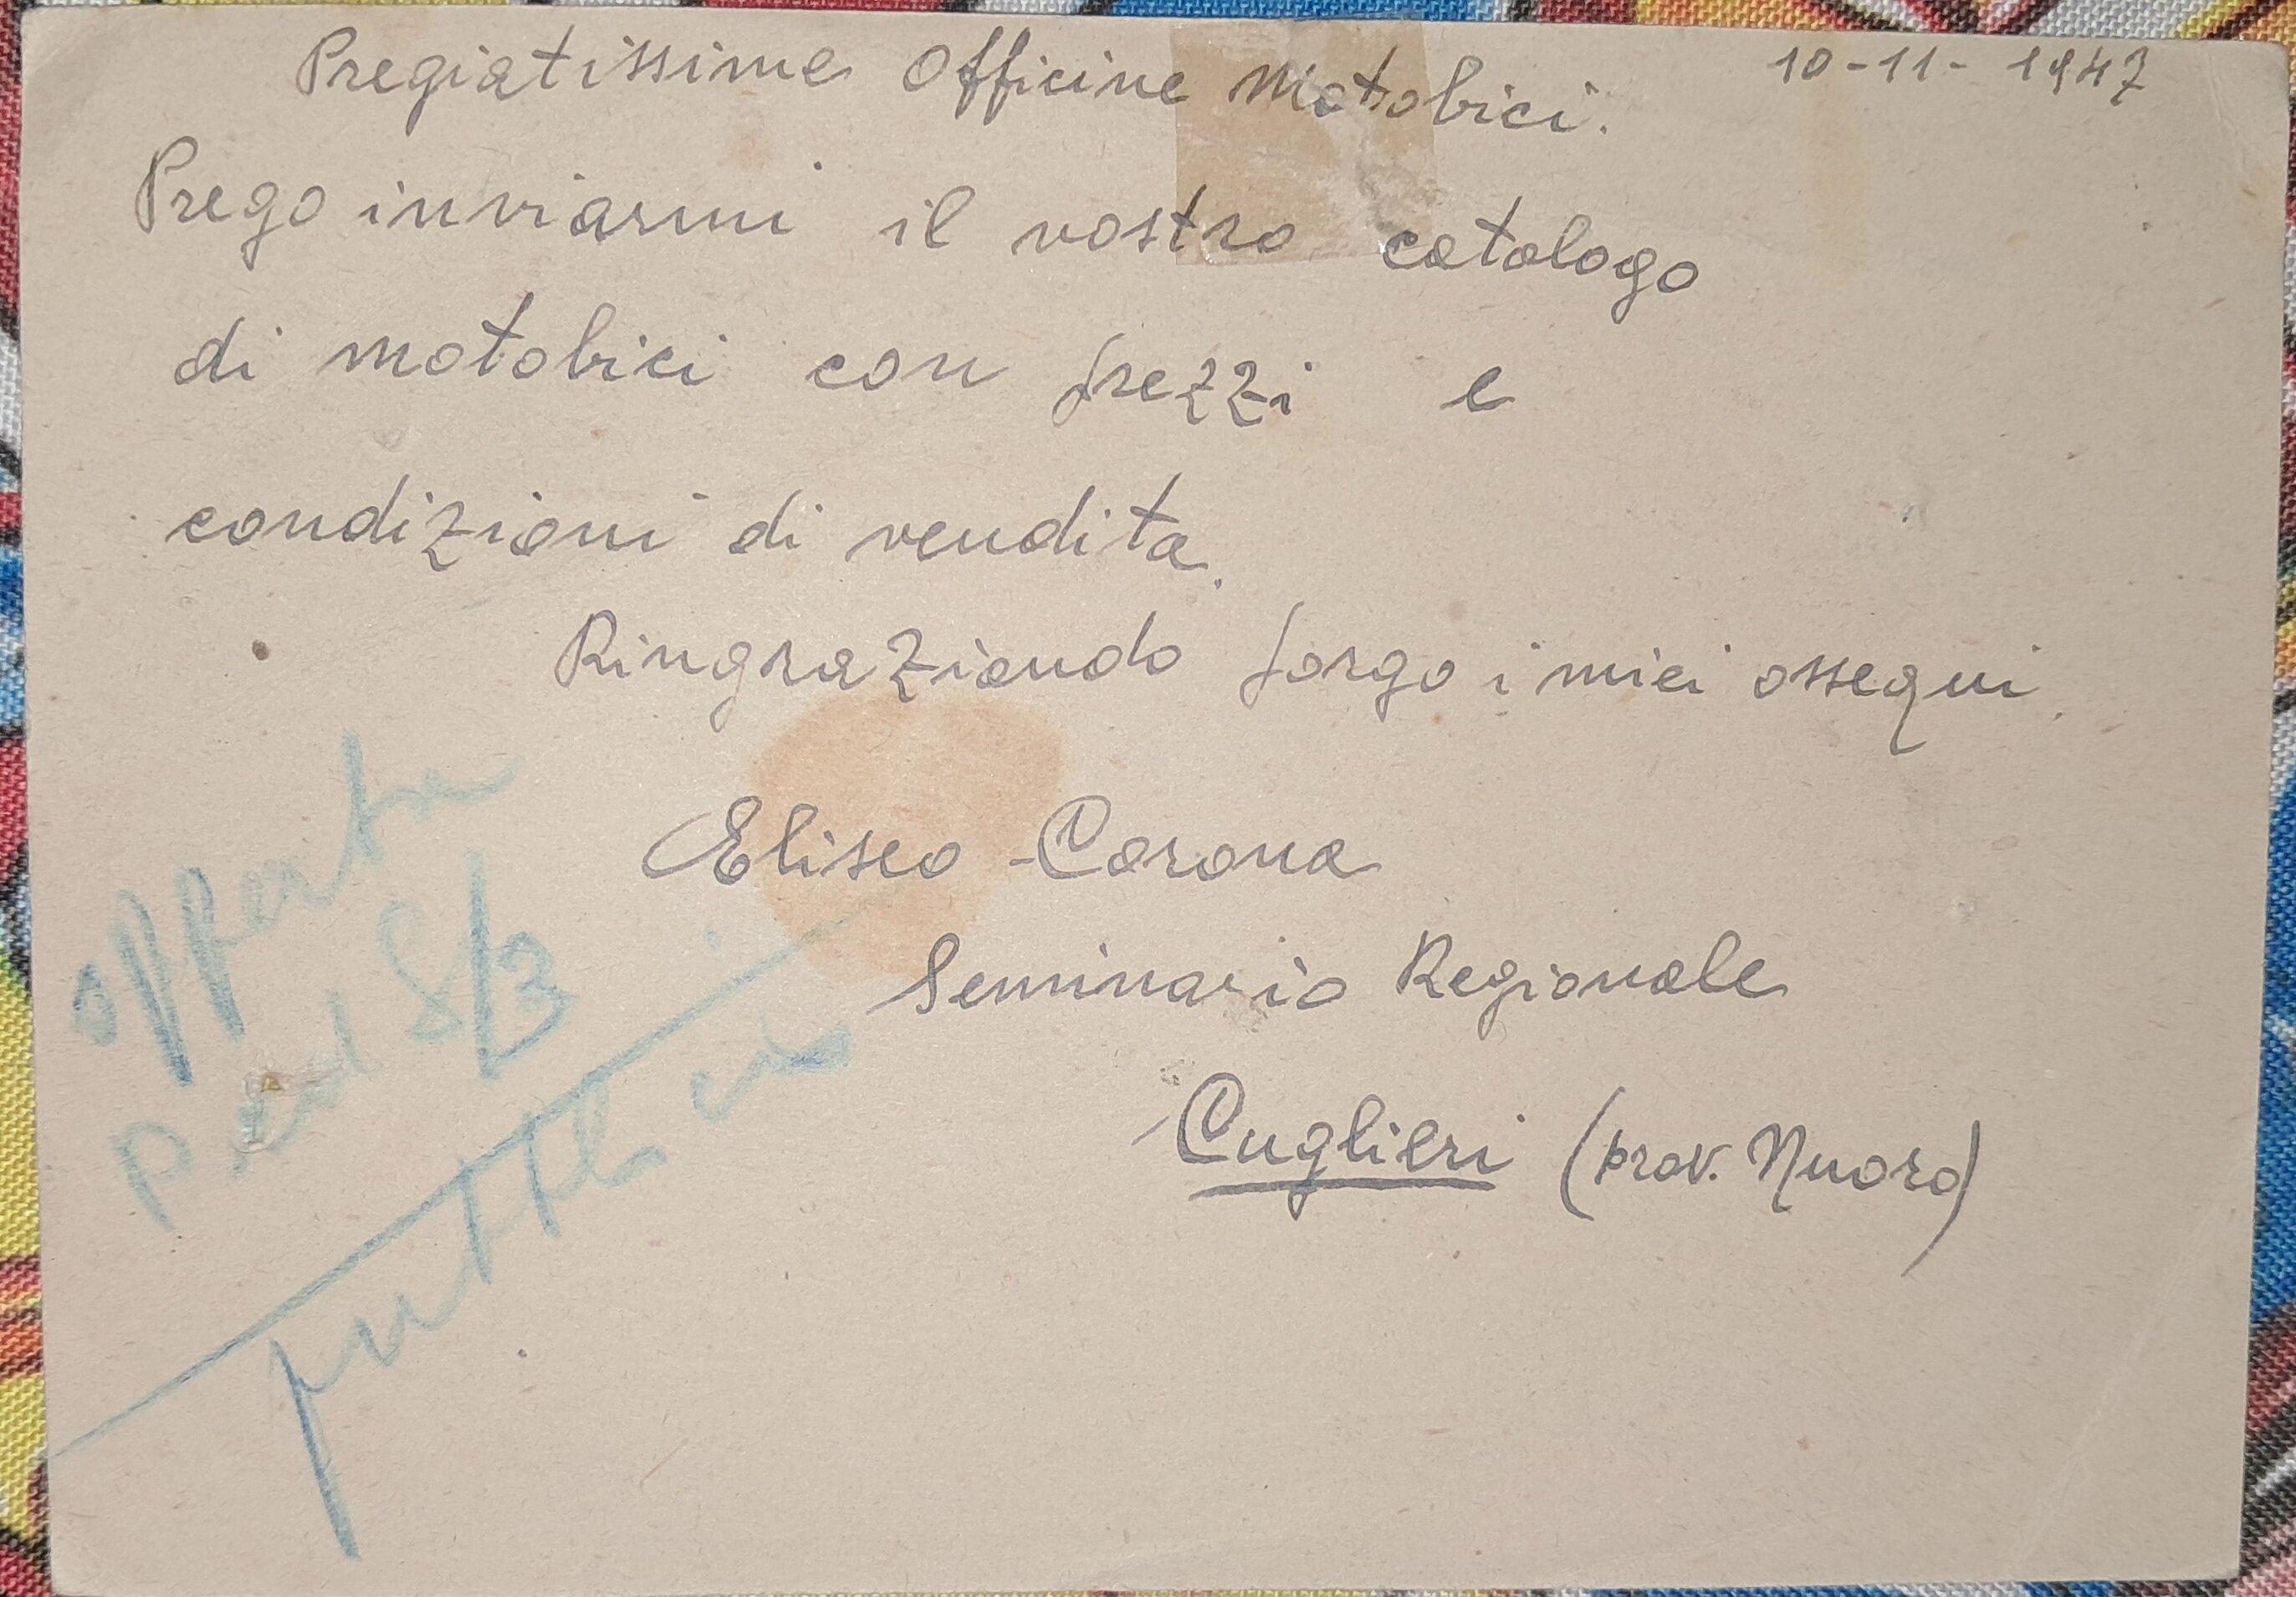 10-11-1947
Pregiatissime Officine Motobici.
Prego inviarmi il vostro catalogo
di motobici con prezzi e
condizioni di vendita.
Ringraziando porgo i miei ossequi.
Eliseo Corona
Seminario Regionale
Cuglieri (prov. Nuoro)
offerta
8/3